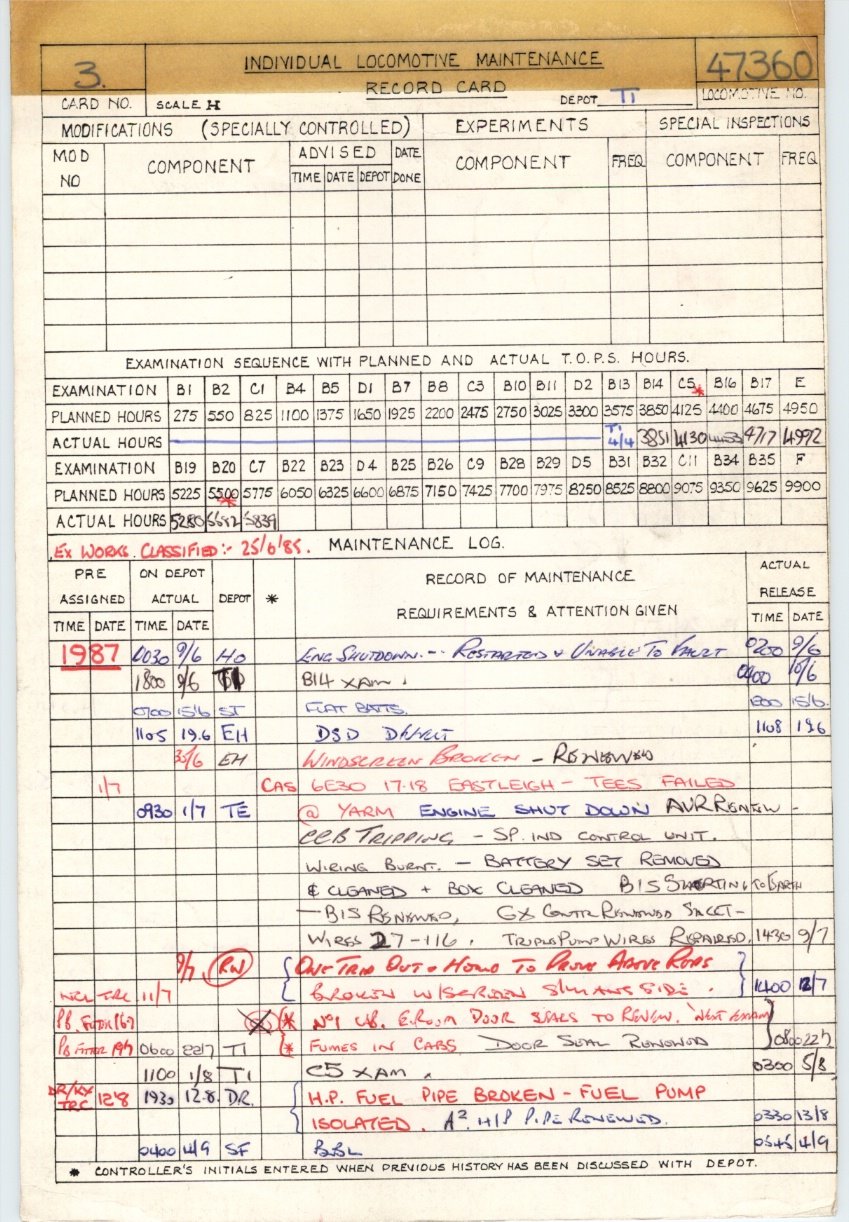 3. INDIVIDUAL LOCOMOTIVE MAINTENANCE 47360
RECORD CARD
CARD NO. SCALE H DEPOT TI LOCOMOTIVE NO.
MODIFICATIONS (SPECIALLY CONTROLLED) EXPERIMENTS SPECIAL INSPECTIONS
MOD NO COMPONENT ADVISED DATE DONE COMPONENT FREQ COMPONENT FREQ
TIME DATE DEPOT
EXAMINATION SEQUENCE WITH PLANNED AND ACTUAL T.O.P.S. HOURS.
EXAMINATION B1 B2 C1 B4 B5 D1 B7 B8 C3 B10 B11 D2 B13 B14 C5* B16 B17 E
PLANNED HOURS 275 550 825 1100 1375 1650 1925 2200 2475 2750 3025 3300 3575 3850 4125 4400 4675 4950
ACTUAL HOURS TI 4/4 3851 4130 4453 4717 4992
EXAMINATION B19 B20 C7 B22 B23 D4 B25 B26 C9 B28 B29 D5 B31 B32 C11 B34 B35 F
PLANNED HOURS 5225 5500* 5775 6050 6325 6600 6875 7150 7425 7700 7975 8250 8525 8800 9075 9350 9625 9900
ACTUAL HOURS 5280 5582 5839
EX WORKS CLASSIFIED:- 25/6/85. MAINTENANCE LOG.
PRE ASSIGNED ON DEPOT ACTUAL DEPOT * RECORD OF MAINTENANCE REQUIREMENTS & ATTENTION GIVEN ACTUAL RELEASE
TIME DATE TIME DATE TIME DATE
1987 0030 9/6 HO ENG SHUTDOWN -- RESTARTED & UNABLE TO FAULT 0200 9/6
1800 9/6 TI B14 XAM. 0400 10/6
0700 15/6 ST FLAT BATTS. 1200 15/6.
1105 19.6 EH DSD DEFECT 1108 19.6
30/6 EH WINDSCREEN BROKEN - RENEWED
1/7 CAS 6E30 17.18 EASTLEIGH - TEES FAILED
0930 1/7 TE @ YARM ENGINE SHUT DOWN AVR RENEW -
CCB TRIPPING - SP. IND CONTROL UNIT.
WIRING BURNT. - BATTERY SET REMOVED
& CLEANED + BOX CLEANED BIS SHORTING TO EARTH
- BIS RENEWED, GX CONTR RENEWED
WIRES 27 - 116. TRIPLE PUMP WIRES REPAIRED. 1430 9/7
9/7 RN ONE TRIP OUT & HOME TO PROVE ABOVE REPS
11/7 BROKEN W/SCREEN S/MANS SIDE. 1400 12/7
PB. FITTER 16/7 * No1 CAB. E.ROOM DOOR SEALS TO RENEW. 'NEXT EXAM'
PB FITTER 19/7 0600 22/7 TI * FUMES IN CABS. DOOR SEAL RENEWED 0800 22/7
1100 1/8 TI C5 XAM. 0300 5/8
DR/KX TRC 12'8 1930 12.8. DR. H.P. FUEL PIPE BROKEN - FUEL PUMP
ISOLATED. A2 H/P PIPE RENEWED. 0330 13/8
0400 4/9 SF BBL 0545 4/9
* CONTROLLER'S INITIALS ENTERED WHEN PREVIOUS HISTORY HAS BEEN DISCUSSED WITH DEPOT.